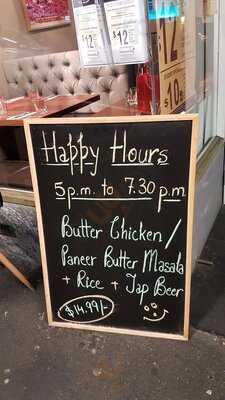 $12
$12
12
$10
Happy Hours
5 p.m. to 7.30 p.m
Butter Chicken /
Paneer Butter Masala
+ Rice + Tap Beer
$14.99/-